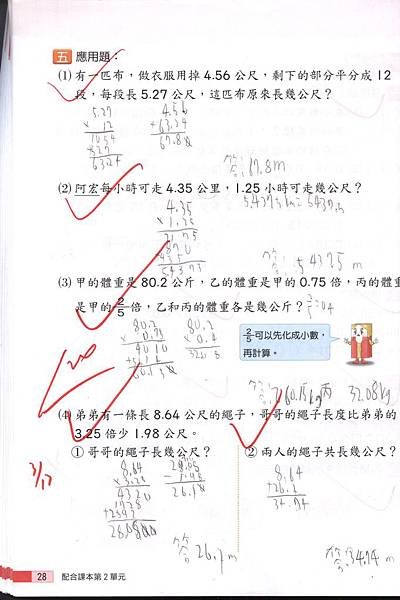 五 應用題：
(1) 有一匹布，做衣服用掉 4.56 公尺，剩下的部分平分成 12
段，每段長 5.27 公尺，這匹布原來長幾公尺？
5.27
× 12
1054
527
63.24
4.56
+63.24
67.80
答：67.8m
(2) 阿宏每小時可走 4.35 公里，1.25 小時可走幾公尺？
4.35
× 1.25
2175
870
435
(3) 甲的體重是 80.2 公斤，乙的體重是甲的 0.75 倍，丙的體重
是甲的 2/5 倍，乙和丙的體重各是幾公斤？
80.2
× 0.75
4010
80.2
× 0.4
2/5 可以先化成小數，
再計算。
32.08kg
(4) 弟弟有一條長 8.64 公尺的繩子，哥哥的繩子長度比弟弟的
3.25 倍少 1.98 公尺。
① 哥哥的繩子長幾公尺？
② 兩人的繩子共長幾公尺？
8.64
× 3.25
4320
1728
答：26.1m
8.64
+26.1
34.74
答：34.74m
28 配合課本第 2 單元